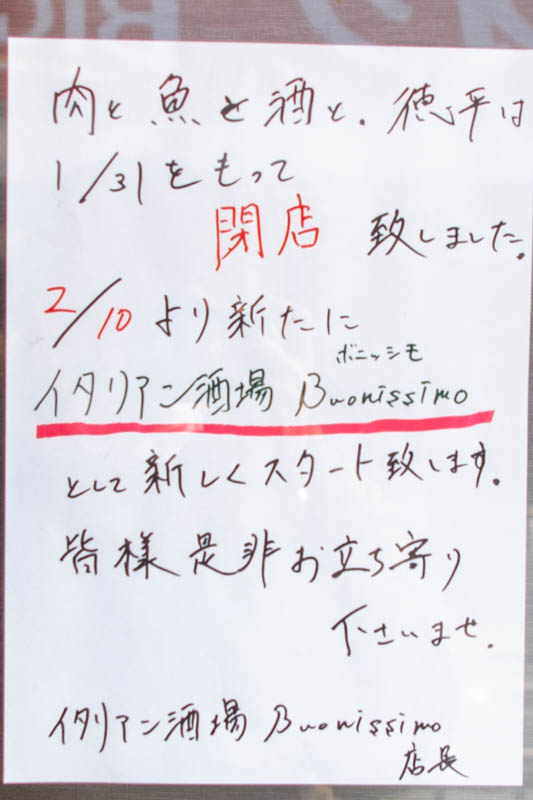 肉と魚と酒と、徳平は
1/31をもって
閉店 致しました。
2/10より新たに
ボニッシモ
イタリアン酒場 Buonissimo
として新しくスタート致します。
皆様是非お立ち寄り
下さいませ。
イタリアン酒場 Buonissimo
店長